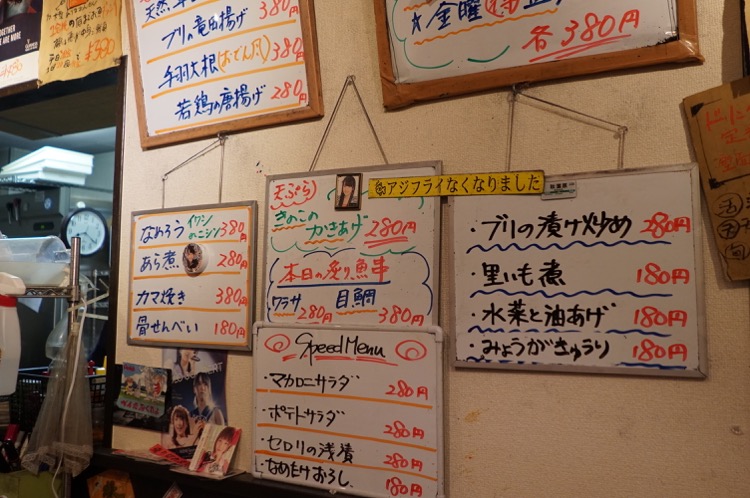 ブリの竜田揚げ 380円
手羽大根(おでん風) 380円
若鶏の唐揚げ 280円
金曜
各380円
なめろう イワシ ニシン 380円
あら煮 280円
カマ焼き 380円
骨せんべい 180円
天ぷら
きのこの
かきあげ
280円
本日の炙り魚串
ワラサ 280円
目鯛 380円
アジフライなくなりました
・ブリの漬け炒め 280円
・里いも煮 180円
・水菜と油あげ 180円
・みょうがきゅうり 180円
Speed Menu
・マカロニサラダ 280円
・ポテトサラダ 280円
・セロリの浅漬 280円
・なめたけおろし 180円